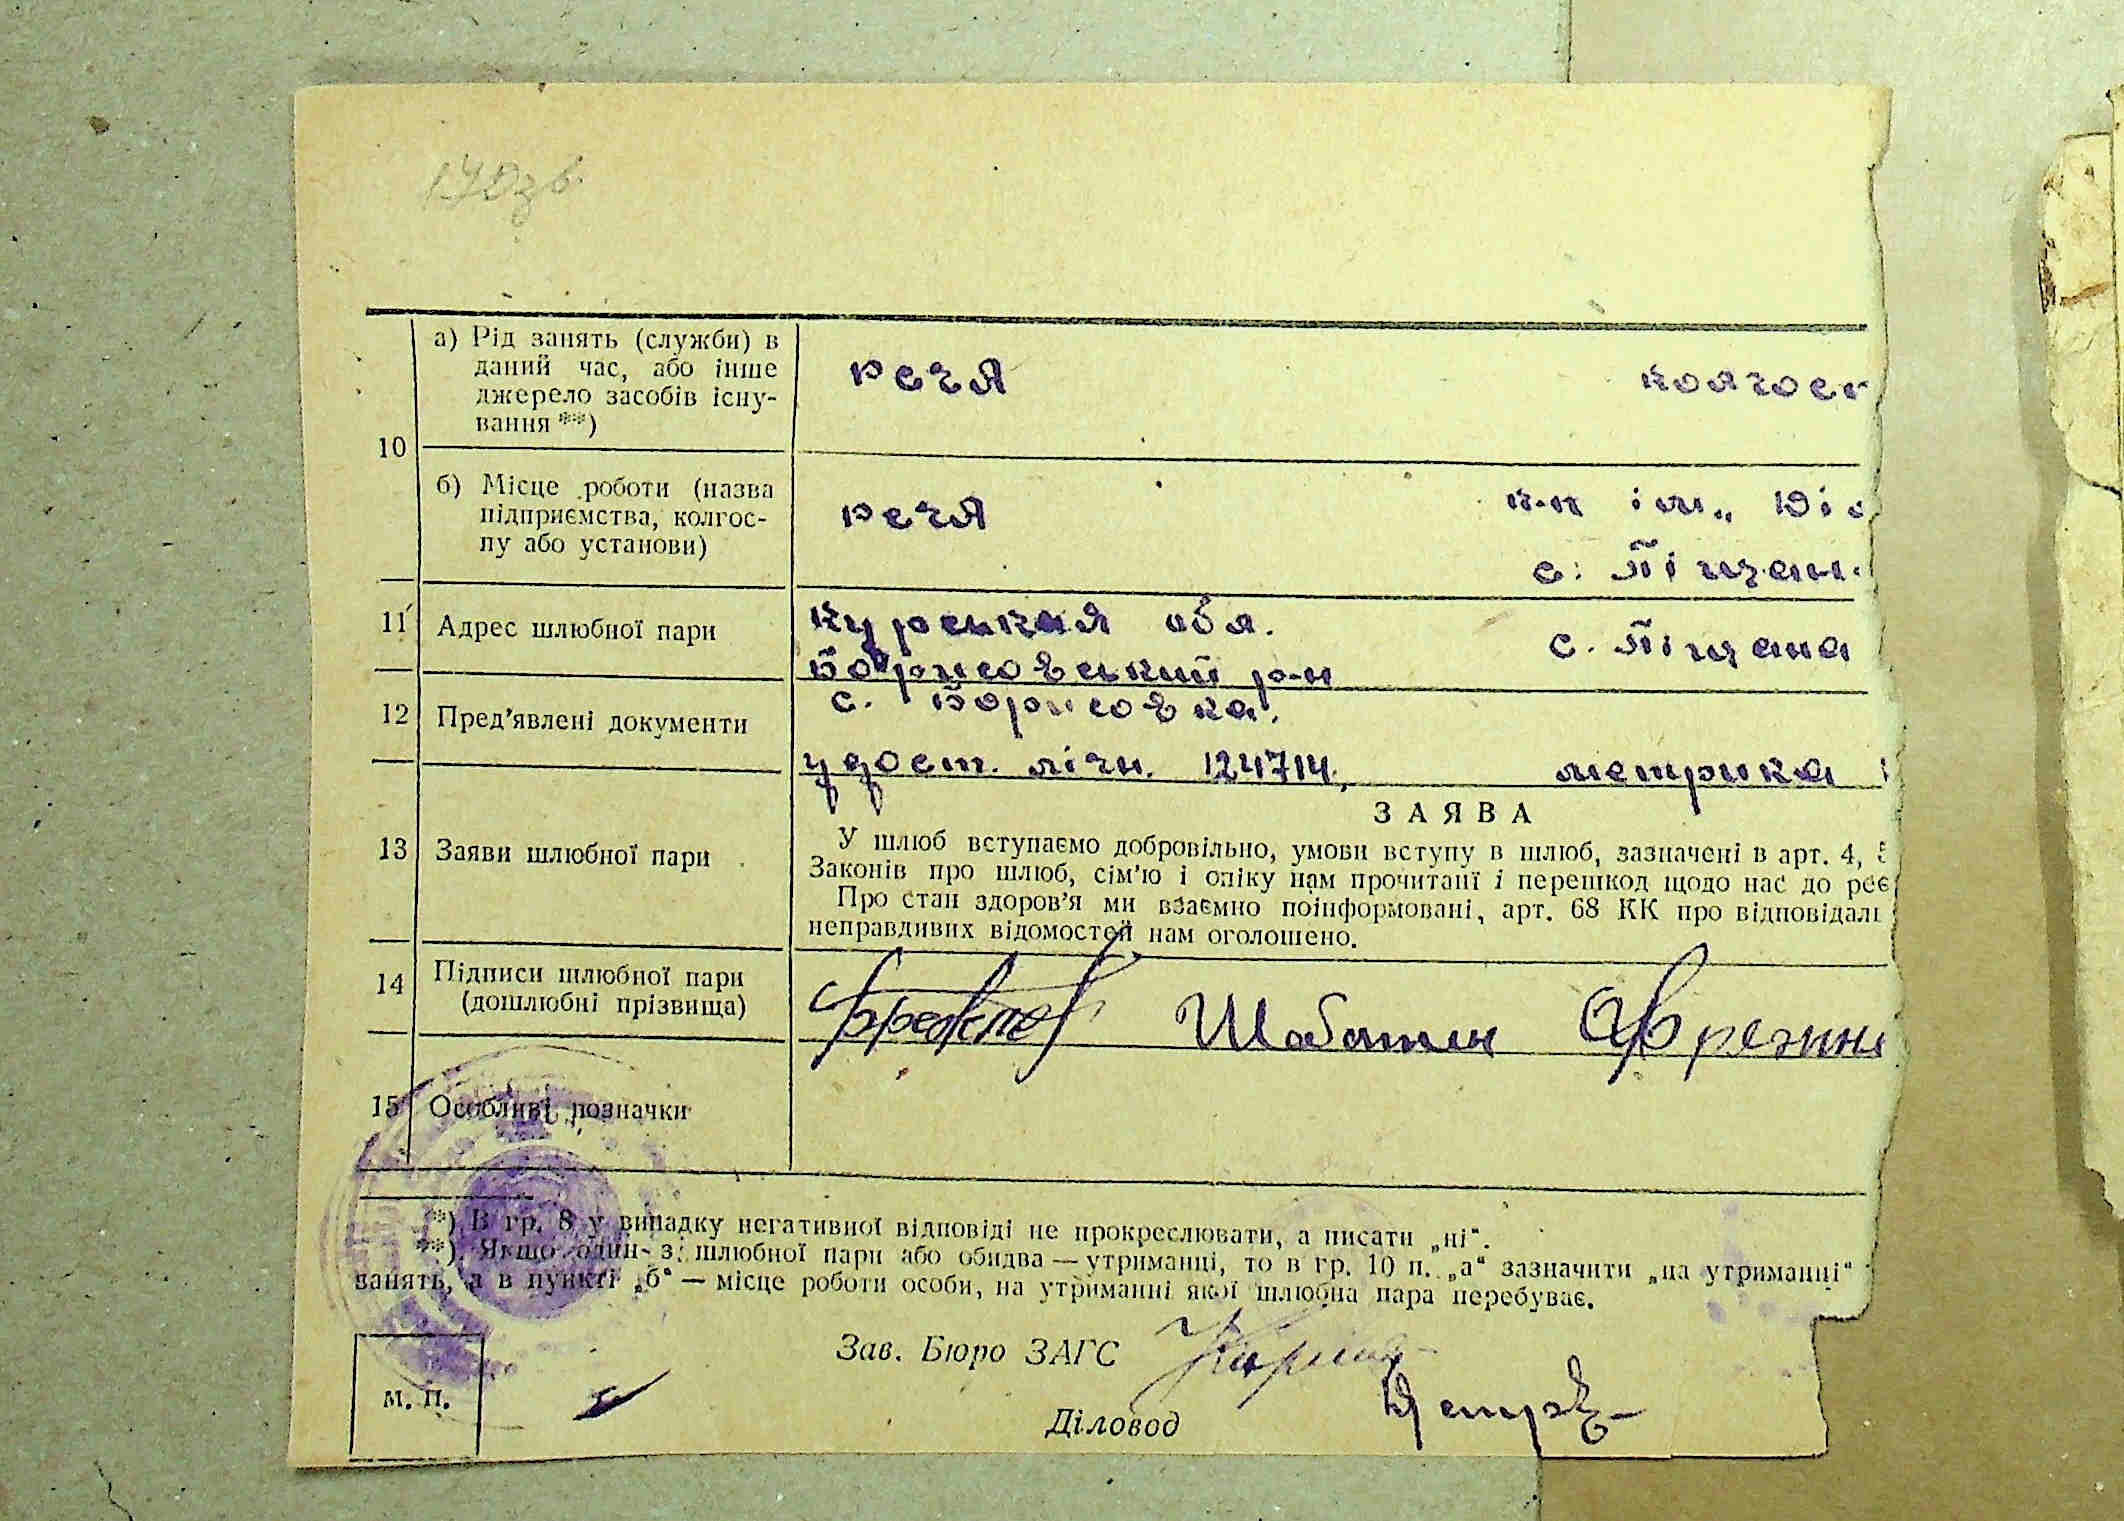 170зв.
10
а) Рід занять (служби) в
даний час, або інше
джерело засобів існу-
вання **)
колгосп
б) Місце роботи (назва
підприємства, колгос-
пу або установи)
к-п ім.
с. Піщан
11 Адрес шлюбної пари
Курськая обл.
Борисовський р-н
с. Борисовка.
с. Піщана
12 Пред'явлені документи
удост. лічн. 124714,
метрика
13 Заяви шлюбної пари
ЗАЯВА
У шлюб вступаємо добровільно, умови вступу в шлюб, зазначені в арт. 4, 5
Законів про шлюб, сім'ю і опіку нам прочитані і перешкод щодо нас до реє
Про стан здоров'я ми взаємно поінформовані, арт. 68 КК про відповідаль
неправдивих відомостей нам оголошено.
14 Підписи шлюбної пари
(дошлюбні прізвища)
15 Особливі позначки
**) В гр. 8 у випадку негативної відповіді не прокреслювати, а писати „ні“.
**) Якщо один з шлюбної пари або обидва — утриманці, то в гр. 10 п. „а“ зазначити „на утриманні“
занять, а в пункті „б“ — місце роботи особи, на утриманні якої шлюбна пара перебуває.
Зав. Бюро ЗАГС
Діловод
М. П.